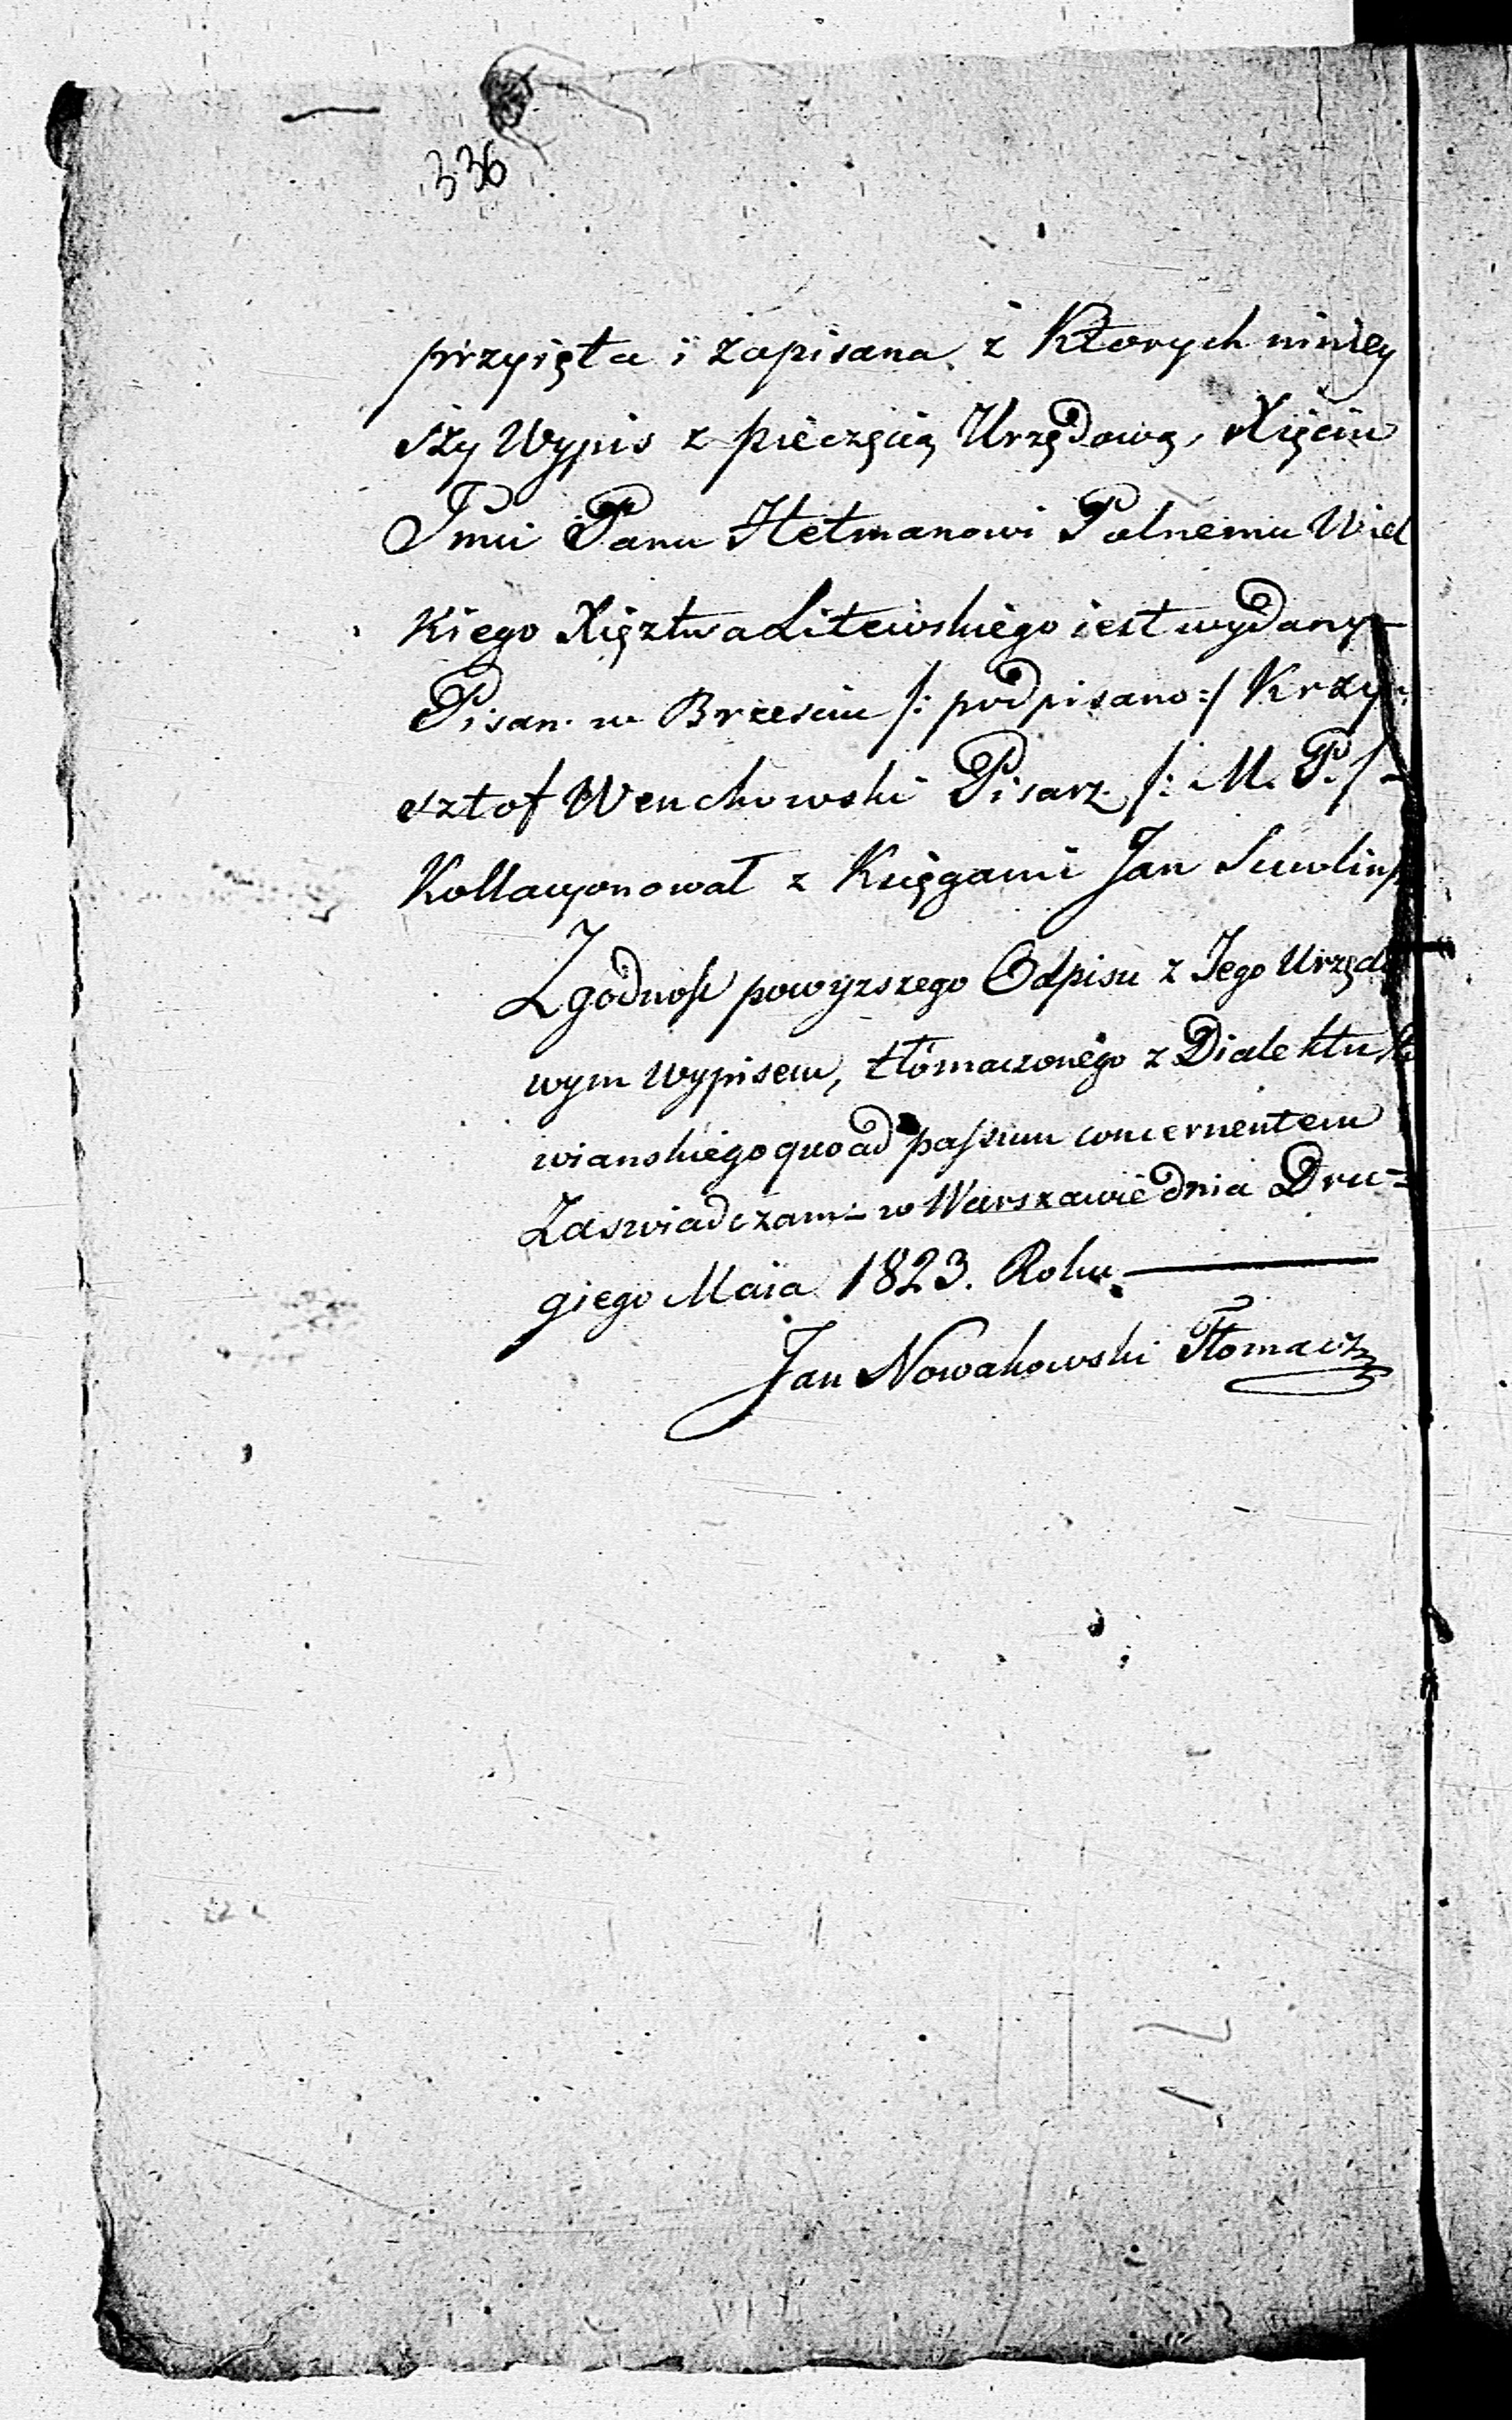 336
przyięta i zapisana z Ktorych niniey
szy Wypis z pieczęcią Urzędową, Xięciu
Jmci Panu Hetmanowi Polnemu Wiel
Kiego Xięztwa Litewskiego iest wydany
Pisan. w Brzesciu /: podpisano :/ Krzy:
sztof Wenchowski Pisarz /: M. P. /
Kollacyonował z Księgami Jan
Zgodność powyższego Odpisu z Jego Urzędo
wym Wypisem, tłómaczonego z Dialektu
wianskiego quoad passum concernentem
Zaswiadczam - w Warszawie dnia Dru=
giego Maia 1823. Roku.
Jan Nowakowski Tłomacz